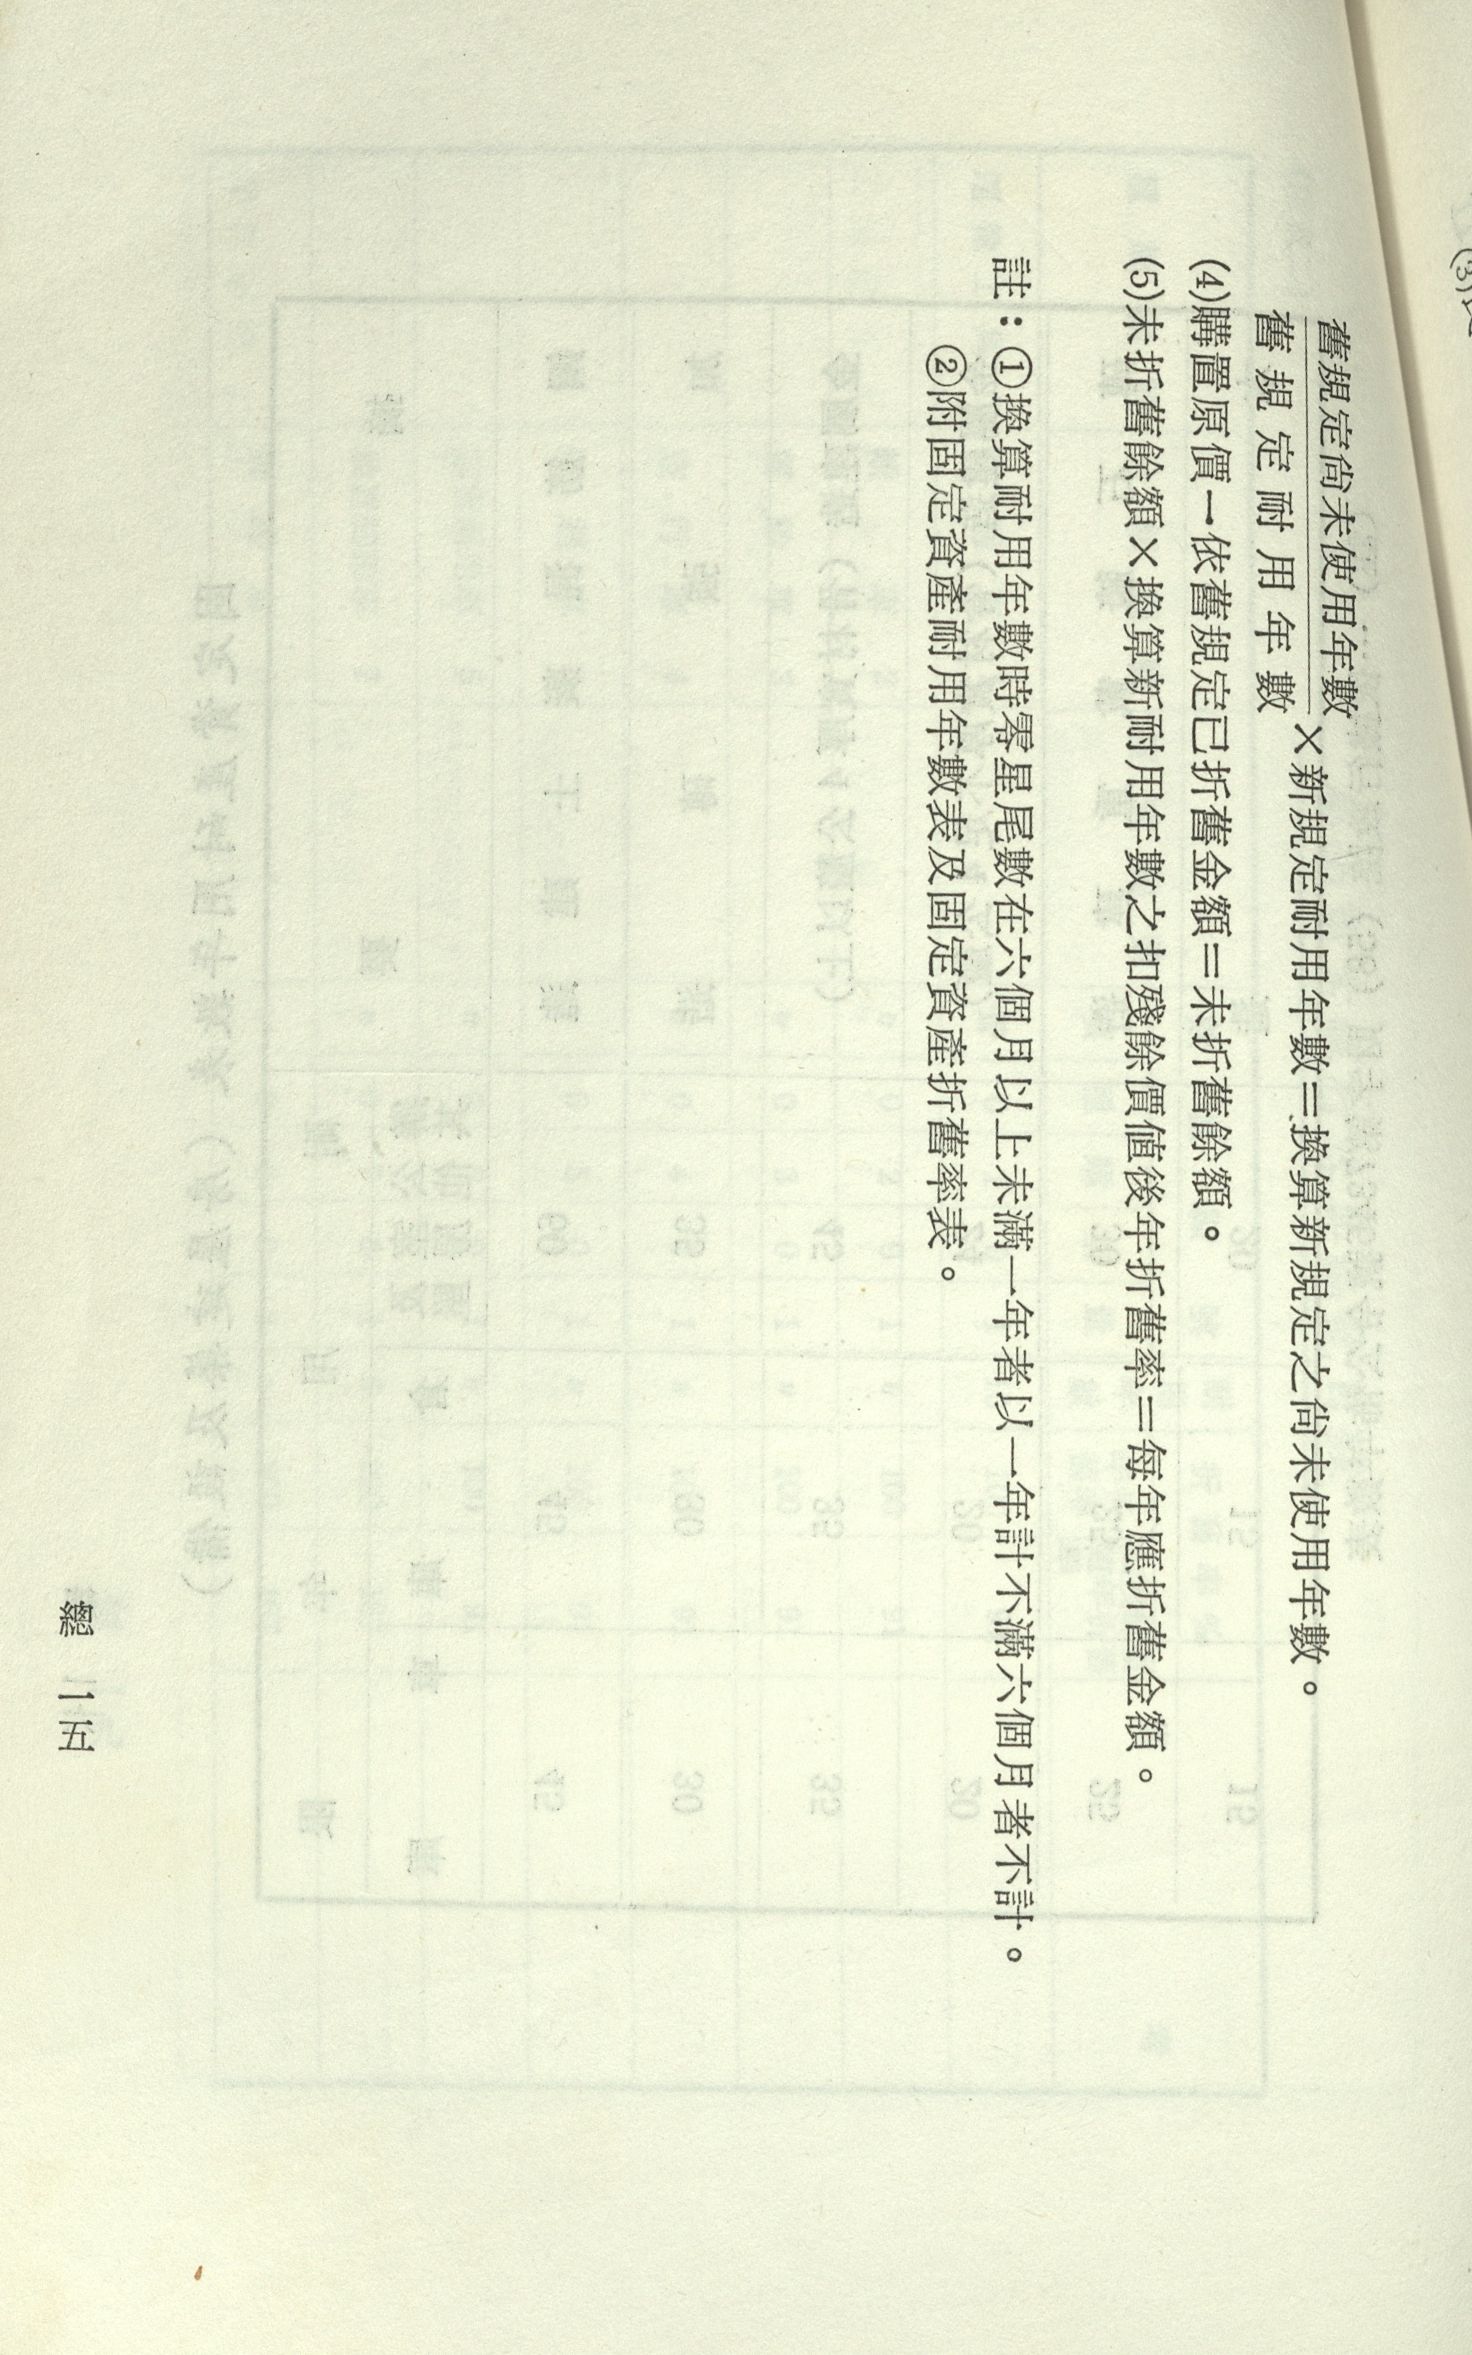 舊規定尚未使用年數
舊規定耐用年數
×新規定耐用年數=換算新規定之尚未使用年數。
(4)購置原價-依舊規定已折舊金額=未折舊餘額。
(5)未折舊餘額×換算新耐用年數之扣殘餘價值後年折舊率=每年應折舊金額。
註:①換算耐用年數時零星尾數在六個月以上未滿一年者以一年計不滿六個月者不計。
②附固定資產耐用年數表及固定資產折舊率表。
總 一五
(3)